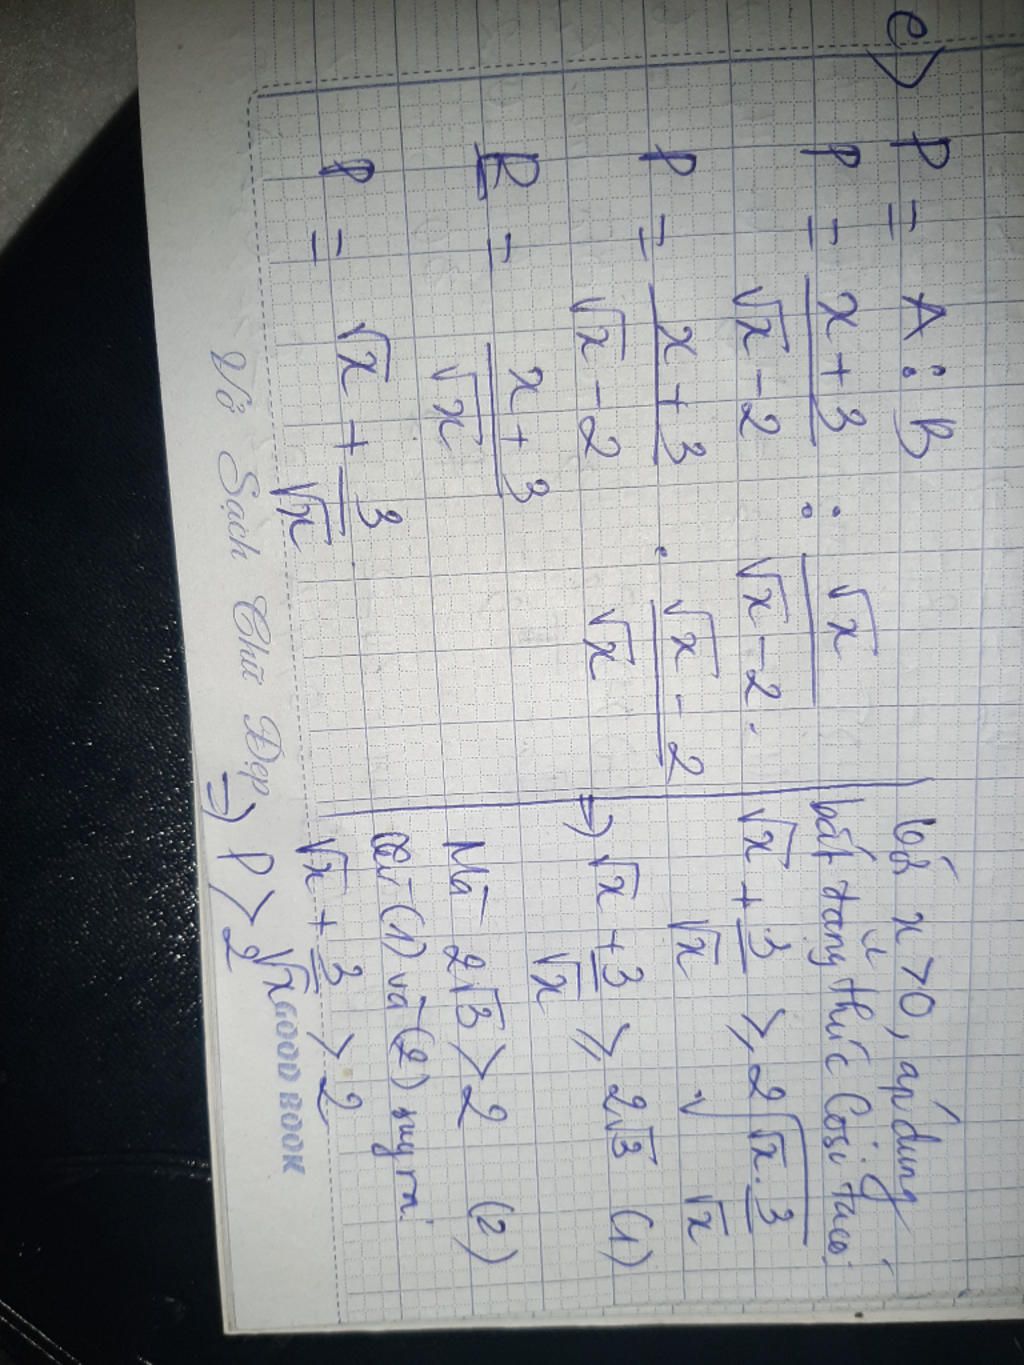 e) P = A : B
P = \frac{x+3}{\sqrt{x}-2} : \frac{\sqrt{x}}{\sqrt{x}-2}.
P = \frac{x+3}{\sqrt{x}-2} . \frac{\sqrt{x}-2}{\sqrt{x}}
P = \frac{x+3}{\sqrt{x}}
P = \sqrt{x} + \frac{3}{\sqrt{x}}
Có x > 0, áp dụng
bất đẳng thức Cosi ta có:
\sqrt{x} + \frac{3}{\sqrt{x}} ≥ 2\sqrt{\sqrt{x}.\frac{3}{\sqrt{x}}}
=> \sqrt{x} + \frac{3}{\sqrt{x}} ≥ 2\sqrt{3} (1)
Mà 2\sqrt{3} > 2 (2)
(1) và (2) suy ra:
\sqrt{x} + \frac{3}{\sqrt{x}} > 2
=> P > 2
Vở Sạch Chữ Đẹp
GOOD BOOK